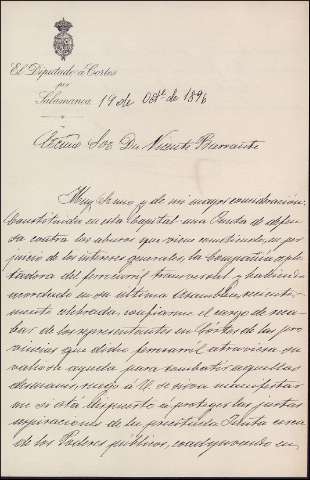 El Diputado a Cortes
por
Salamanca
19 de Obre de 1896
Excmo Sor Dn Vicente Barrantes
Muy Sr mio y de mi mayor consideración:
Constituida en esta Capital una Junta de defen
sa contra los abusos que viene cometiendo, en per
juicio de los intereses generales, la Compañia explo
tadora del ferrocarril transversal y habiendo
acordado en su última Asamblea, reciente
mente celebrada, confiarme el cargo de reca
bar de los representantes en Cortes de las pro
vincias que dicho ferrocarril atraviesa su
valiosa ayuda para combatir aquellos
desmanes, ruego á V. se sirva manifestar
me si está dispuesto á proteger las justas
aspiraciones de la precitada Junta cerca
de los Poderes públicos, coadyuvando en